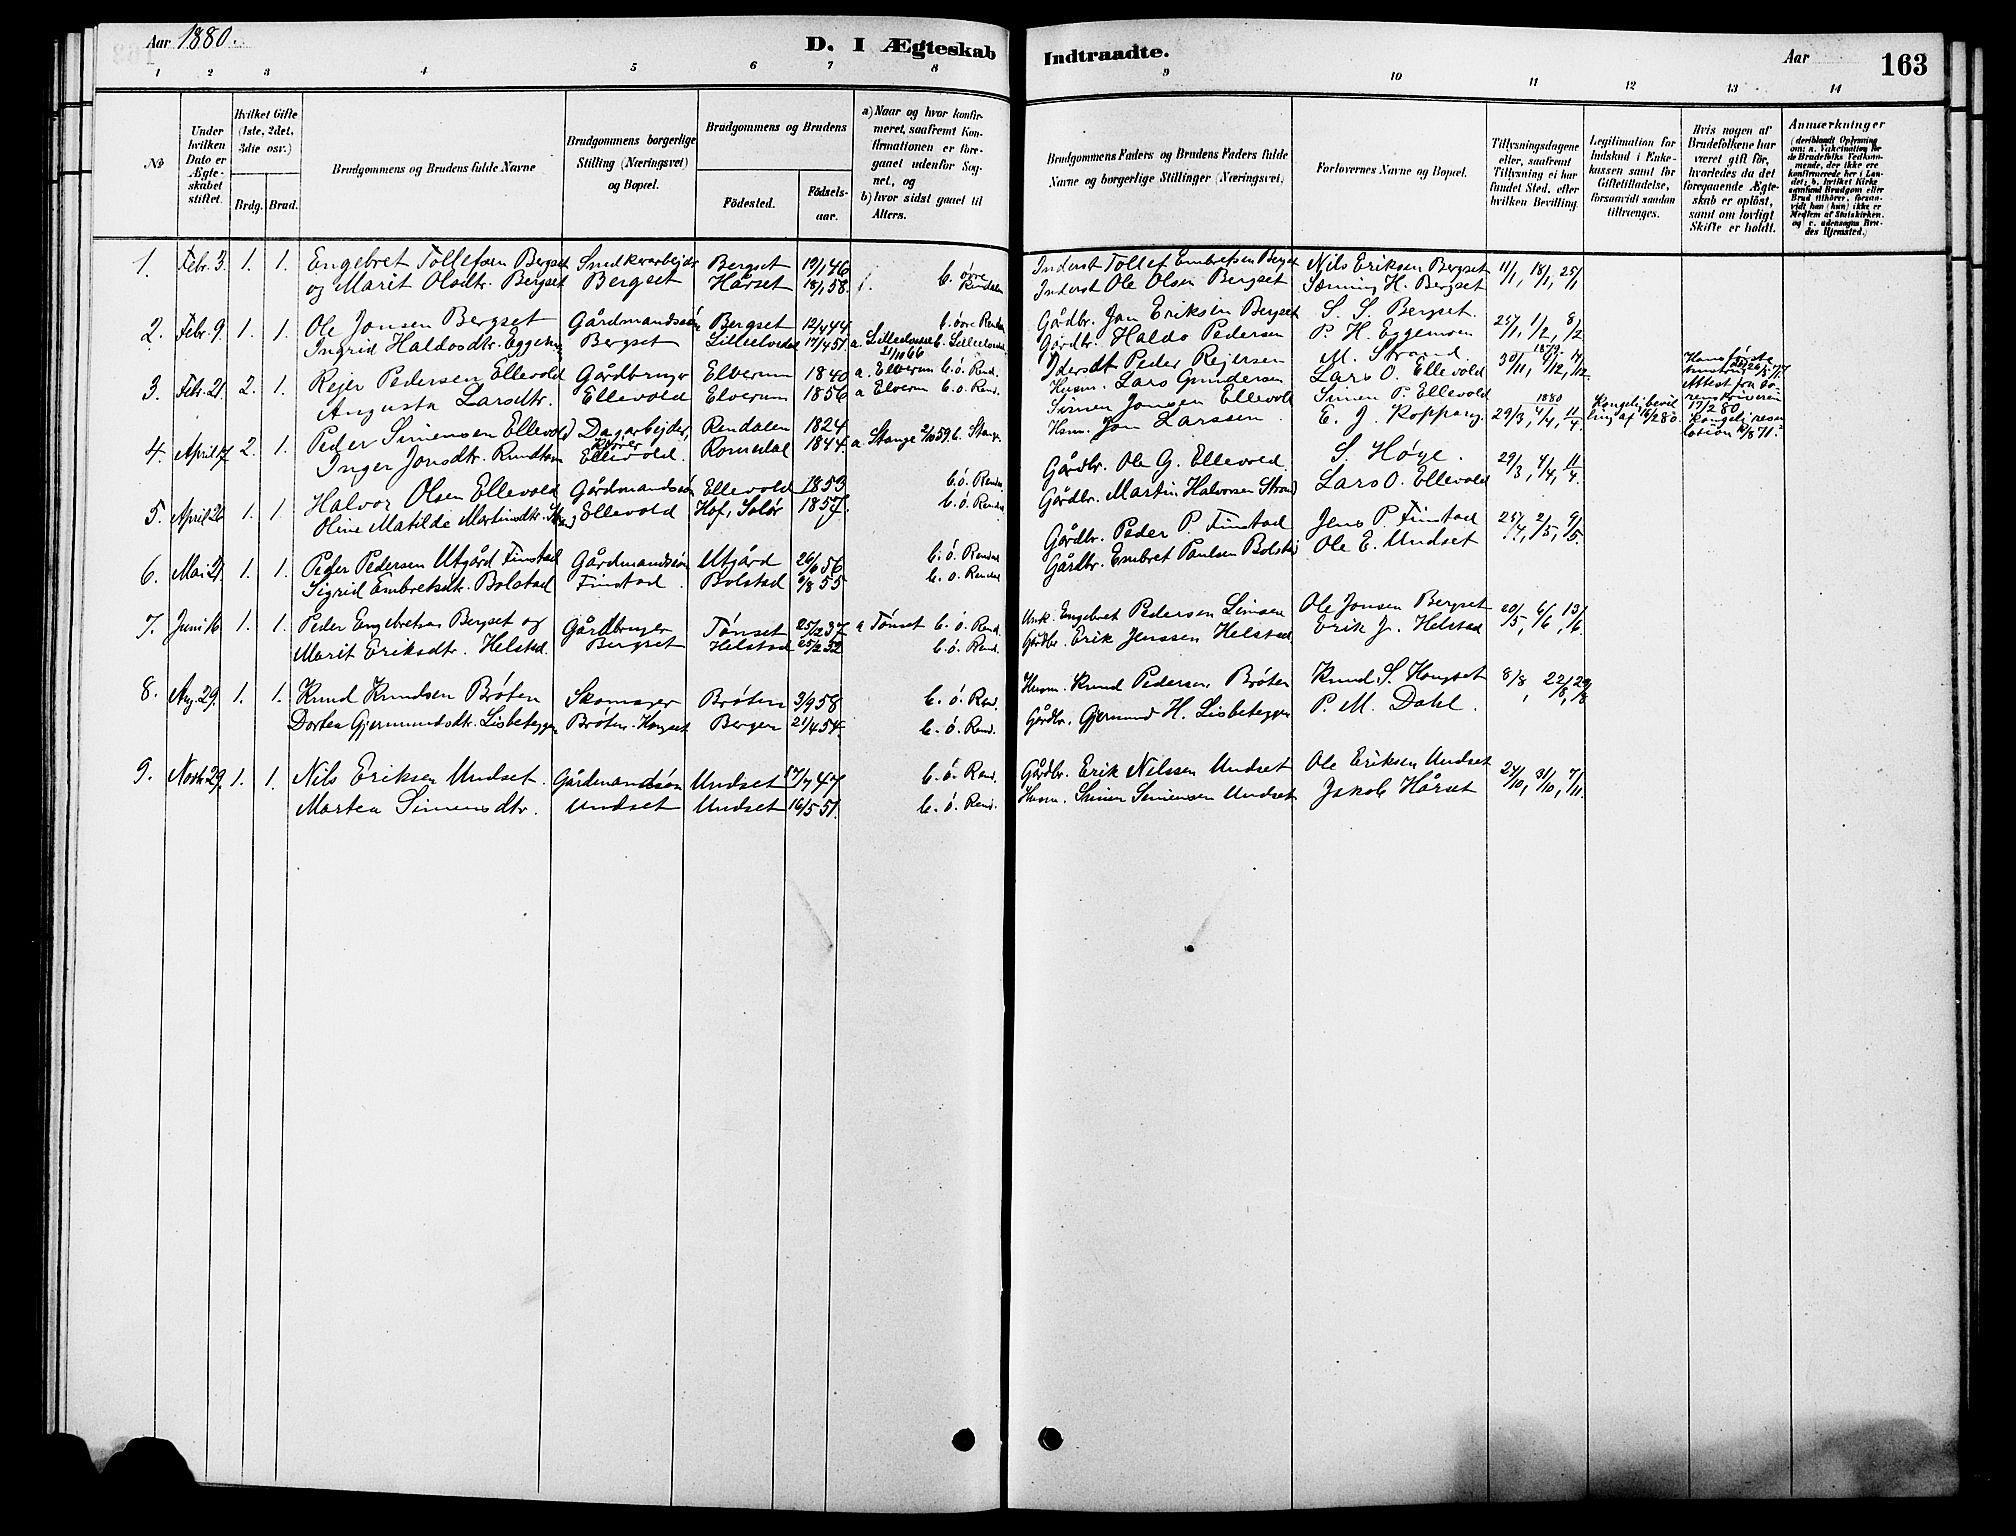 Aar 1880.
D. I Ægteskab Indtraadte.
Aar
163
1 2 3 4 5 6 7 8 9 10 11 12 13 14
No
Under hvilken Dato er Ægteskabet stiftet.
Hvilket Gifte (1ste, 2det, 3die osv.)
Brdg. Brud.
Brudgommens og Brudens fulde Navne
Brudgommens borgerlige Stilling (Næringsvei) og Bopæl.
Brudgommens og Brudens
Födested.
Födselsaar.
a) Naar og hvor konfirmeret, saafremt Konfirmationen er foregaaet udenfor Sognet, og
b) hvor sidst gaaet til Alters.
Brudgommens Faders og Brudens Faders fulde Navne og borgerlige Stillinger (Næringsvei)
Forlovernes Navne og Bopæl.
Tillysningsdagene eller, saafremt Tillysning ei har fundet Sted, efter hvilken Bevilling.
Legitimation for Indskud i Enkekassen samt for Giftetilladelse, forsaavidt saadan tiltrænges.
Hvis nogen af Brudefolkene har været gift för, hvorledes da det foregaaende Ægteskab er oplöst, samt om lovligt Skifte er holdt.
Anmærkninger
1. Febr. 3. 1. 1. Engebret Tollefsen Bergset Snedkerarbejder Bergset 19/1 46 b. øvre Rendalen Inderst Tollef Embretsen Bergset Nils Eriksen Bergset 11/1, 18/1, 25/1
og Marit Olsdtr. Bergset Bergset Hårset 18/1 58. Inderst Ole Olsen Bergset Sønning H. Bergset
2. Febr. 9. 1. 1. Ole Jonsen Bergset Gårdmandssøn Bergset 12/4 44 b. øvre Renda Gårdbr. Jon Eriksen Bergset S. S. Bergset. 25/1, 1/2, 8/2
Ingrid Haldosdtr. Eggemo Bergset Lilleelvedal 17/4 51 a. Lilleelvedal 21/10 66 b. Lilleelvedal Gårdbr. Haldo Pedersen P. H. Eggemoen
3. Febr. 21. 2. 1. Rejer Pedersen Ellevold Gårdbruger Elverum 1840 a. Elverum b. ö. Rend. Peder Rejersen M. Strand. 1879 30/11, 7/12, 14/12
Augusta Larsdtr. Ellevold Elverum 1856 a Elverum b. o. Rend. Husm. Lars Gundersen Lars O. Ellevold
4. April 17. 2. 1. Peder Simensen Ellevold Dagarbejder, Rendalen 1824 Simen Jonsen Ellevold Simen P. Ellevold 1880 29/3, 4/4, 11/4 Kongeli. bevilling af 16/2 80.
Inger Jonsdtr. Ellevold. Romedal 1844. a. Stange 2/10 59. b. Stange. Husm. Jon Larssen E. J. Koppang 17/2 80
5. April 26. 1. 1. Halvor Olsen Ellevold Gårdmandssøn Ellevold 1853 b. ö. Renda. Gårdbr. Ole G. Ellevold. S. Høye. 29/3, 4/4, 11/4
Oline Matilde Martinsdtr. Ellevold Hof, Solör 1857. b. ö. Renda. Gårdbr. Martin Halvorsen Strand Lars O. Ellevold
6. Mai 21. 1. 1. Peder Pedersen Utgård Finstad Gårdmandssøn Utgård 26/6 56 b. ö. Rendal Gårdbr. Peder P. Finstad Jens P. Finstad 25/4, 2/5, 9/5.
Sigrid Embretsdtr. Bolstad Finstad. Bolstad 6/8 55 b. o. Rendal Gårdbr. Embret Paulsen Bolstad Ole E. Undset
7. Juni 16. 1. 1. Peder Engebretsen Bergset og Gårdbruger Tönset 25/12 37 a Tönset b. ö. Rend. Engebret Pedersen Simsen Ole Jonsen Bergset 20/5, 6/6, 13/6.
Marit Eriksdtr. Helstad. Bergset Helstad 25/2 32 b. ö. Rend. Gårdbr. Erik Jenssen Helstad Erik J. Helstad
8. Aug. 29. 1. 1. Knud Knudsen Bröten Skomager Bröten 3/9 58 b. ö. Rend. Husm. Knud Pedersen Bröten Knud S. Hongset 8/8, 22/8, 29/8
Dortea Gjermundsdtr. Lisbeteggen Bröten. Hongset Bergen 21/4 54. b. ö. Rend. Gårdbr. Gjermund H. Lisbeteggen P. M. Dahl.
9. Novbr. 29. 1. 1. Nils Eriksen Undset. Gårdmandssøn Undset 17/7 47 b. ö. Rend. Gårdbr. Erik Nilssen Undset Ole Eriksen Undset 24/10, 31/10, 7/11.
Martea Simensdtr. Undset Undset 16/5 51. b. ö. Rend. Husm. Simen Simensen Undset Jakob Hårset